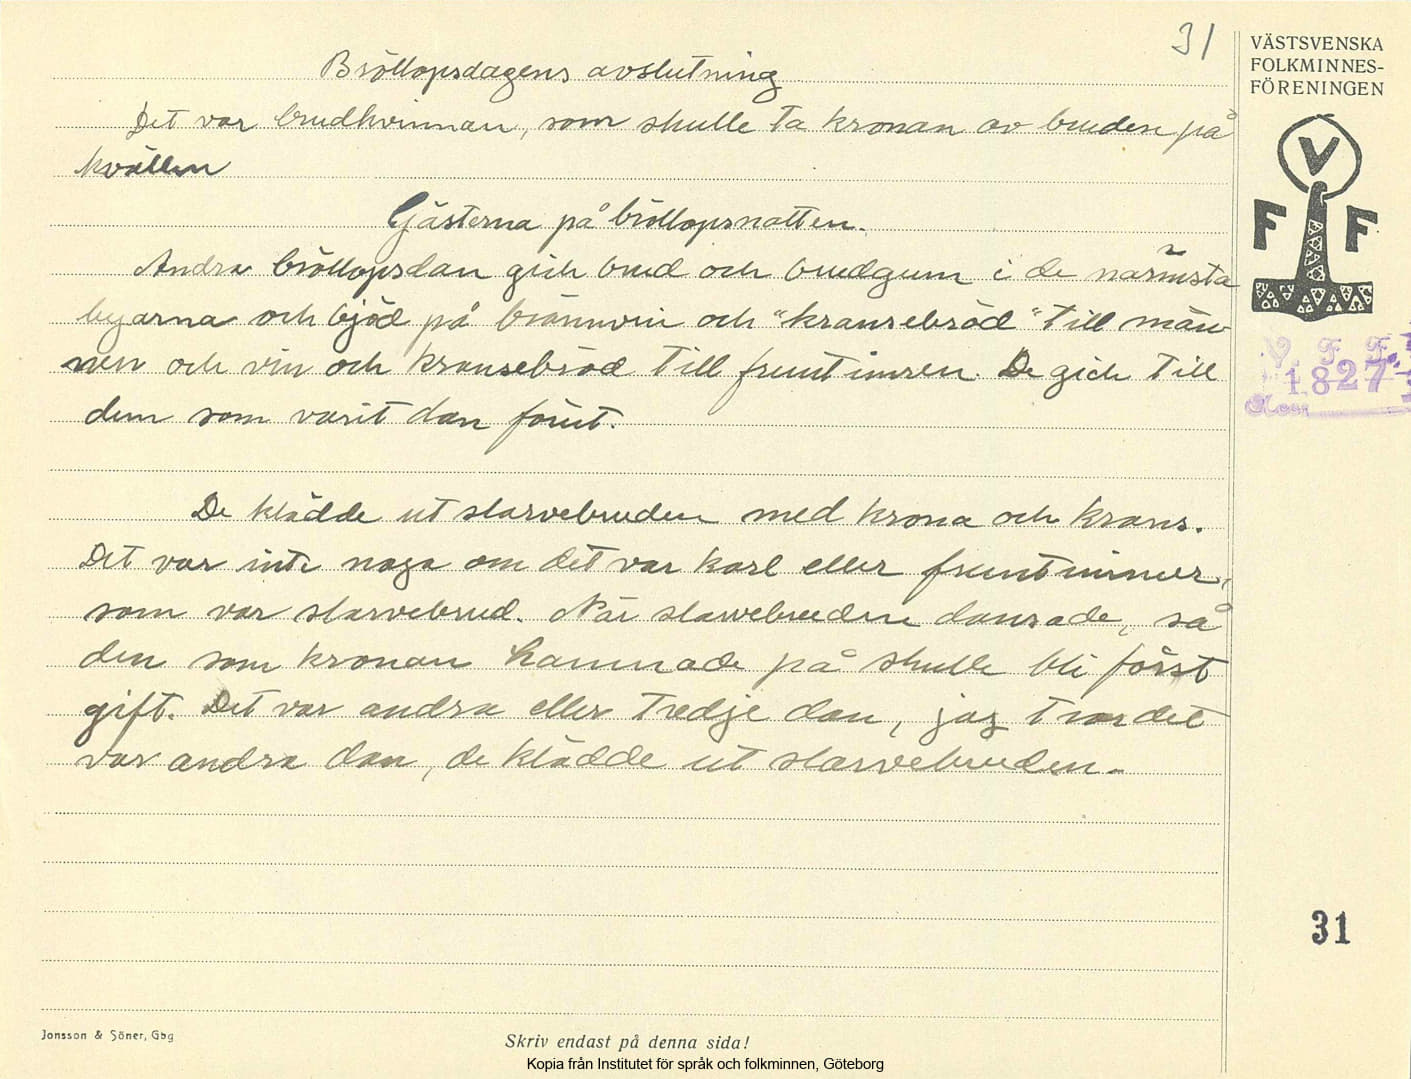 31
Bröllopsdagens avslutning
Det var brudkvinnan, som skulle ta kronan av bruden på
kvällen
Gästerna på bröllopsnatten.
Andra bröllopsdan gick brud och brudgum i de närmsta
byarna och bjöd på brännvin och "kransebröd" till män-
nen och vin och kransebröd till fruntimren. De gick till
dem som varit dan förut.
De klädde ut slarvebruden med krona och krans.
Det var inte noga om det var karl eller fruntimmer,
som var slarvebrud. När slarvebruden dansade, så
den som kronan hamnade på skulle bli först
gift. Det var andra eller tredje dan, jag tror det
var andra dan, de klädde ut slarvebruden.
VÄSTSVENSKA
FOLKMINNES-
FÖRENINGEN
V
F F
V. F. F.
1827
31
Jonsson & Söner, Gbg
Skriv endast på denna sida!
Kopia från Institutet för språk och folkminnen, Göteborg